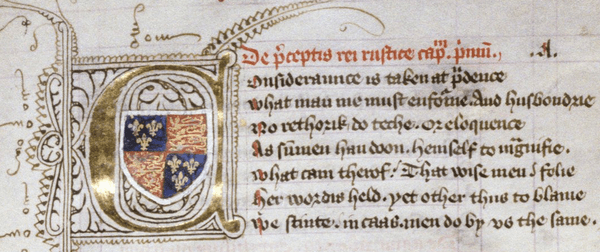 De p̄ceptis rei rustice cap̄m. p̄mū. .A.
Consideraunce is taken at p̄dence
What man me must enforme. And husbondrie
No rethorik do teche. Or eloquence
As sum̄en han doon. hemself to magnifie.
What cam therof? That wise men i folie
Her wordis held. yet other thus to blame
We stinte. in caas. men do by vs the same.